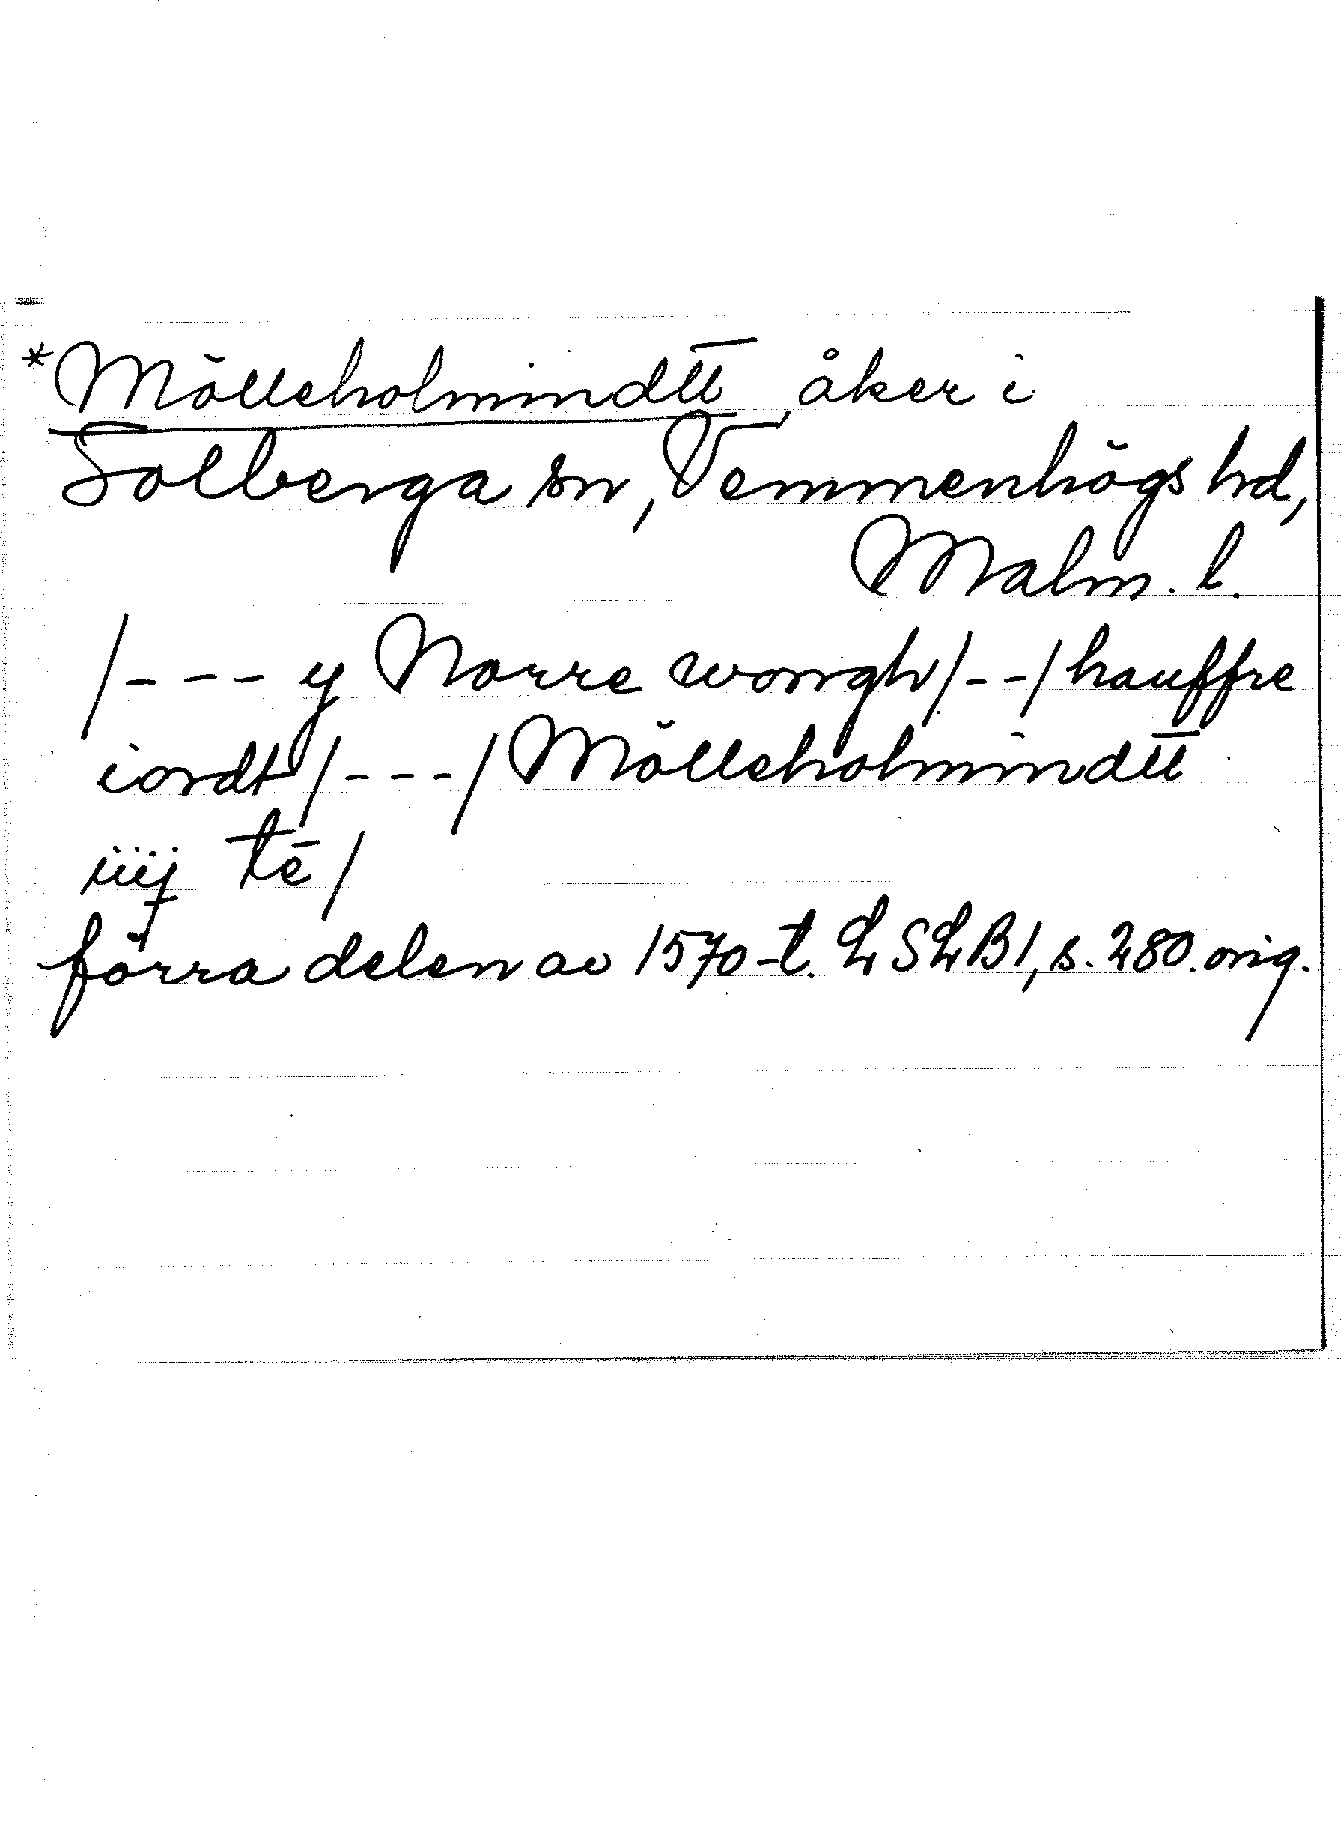 *Mölleholmindtt, åker i
Solberga sn, Vemmenhögs hd,
Malm. l.
/--- y Norre wongh/--/hauffre
iordt/---/Mölleholmindtt
iiij te/
förra delen av 1570-t. LSLB1, s. 280. orig.